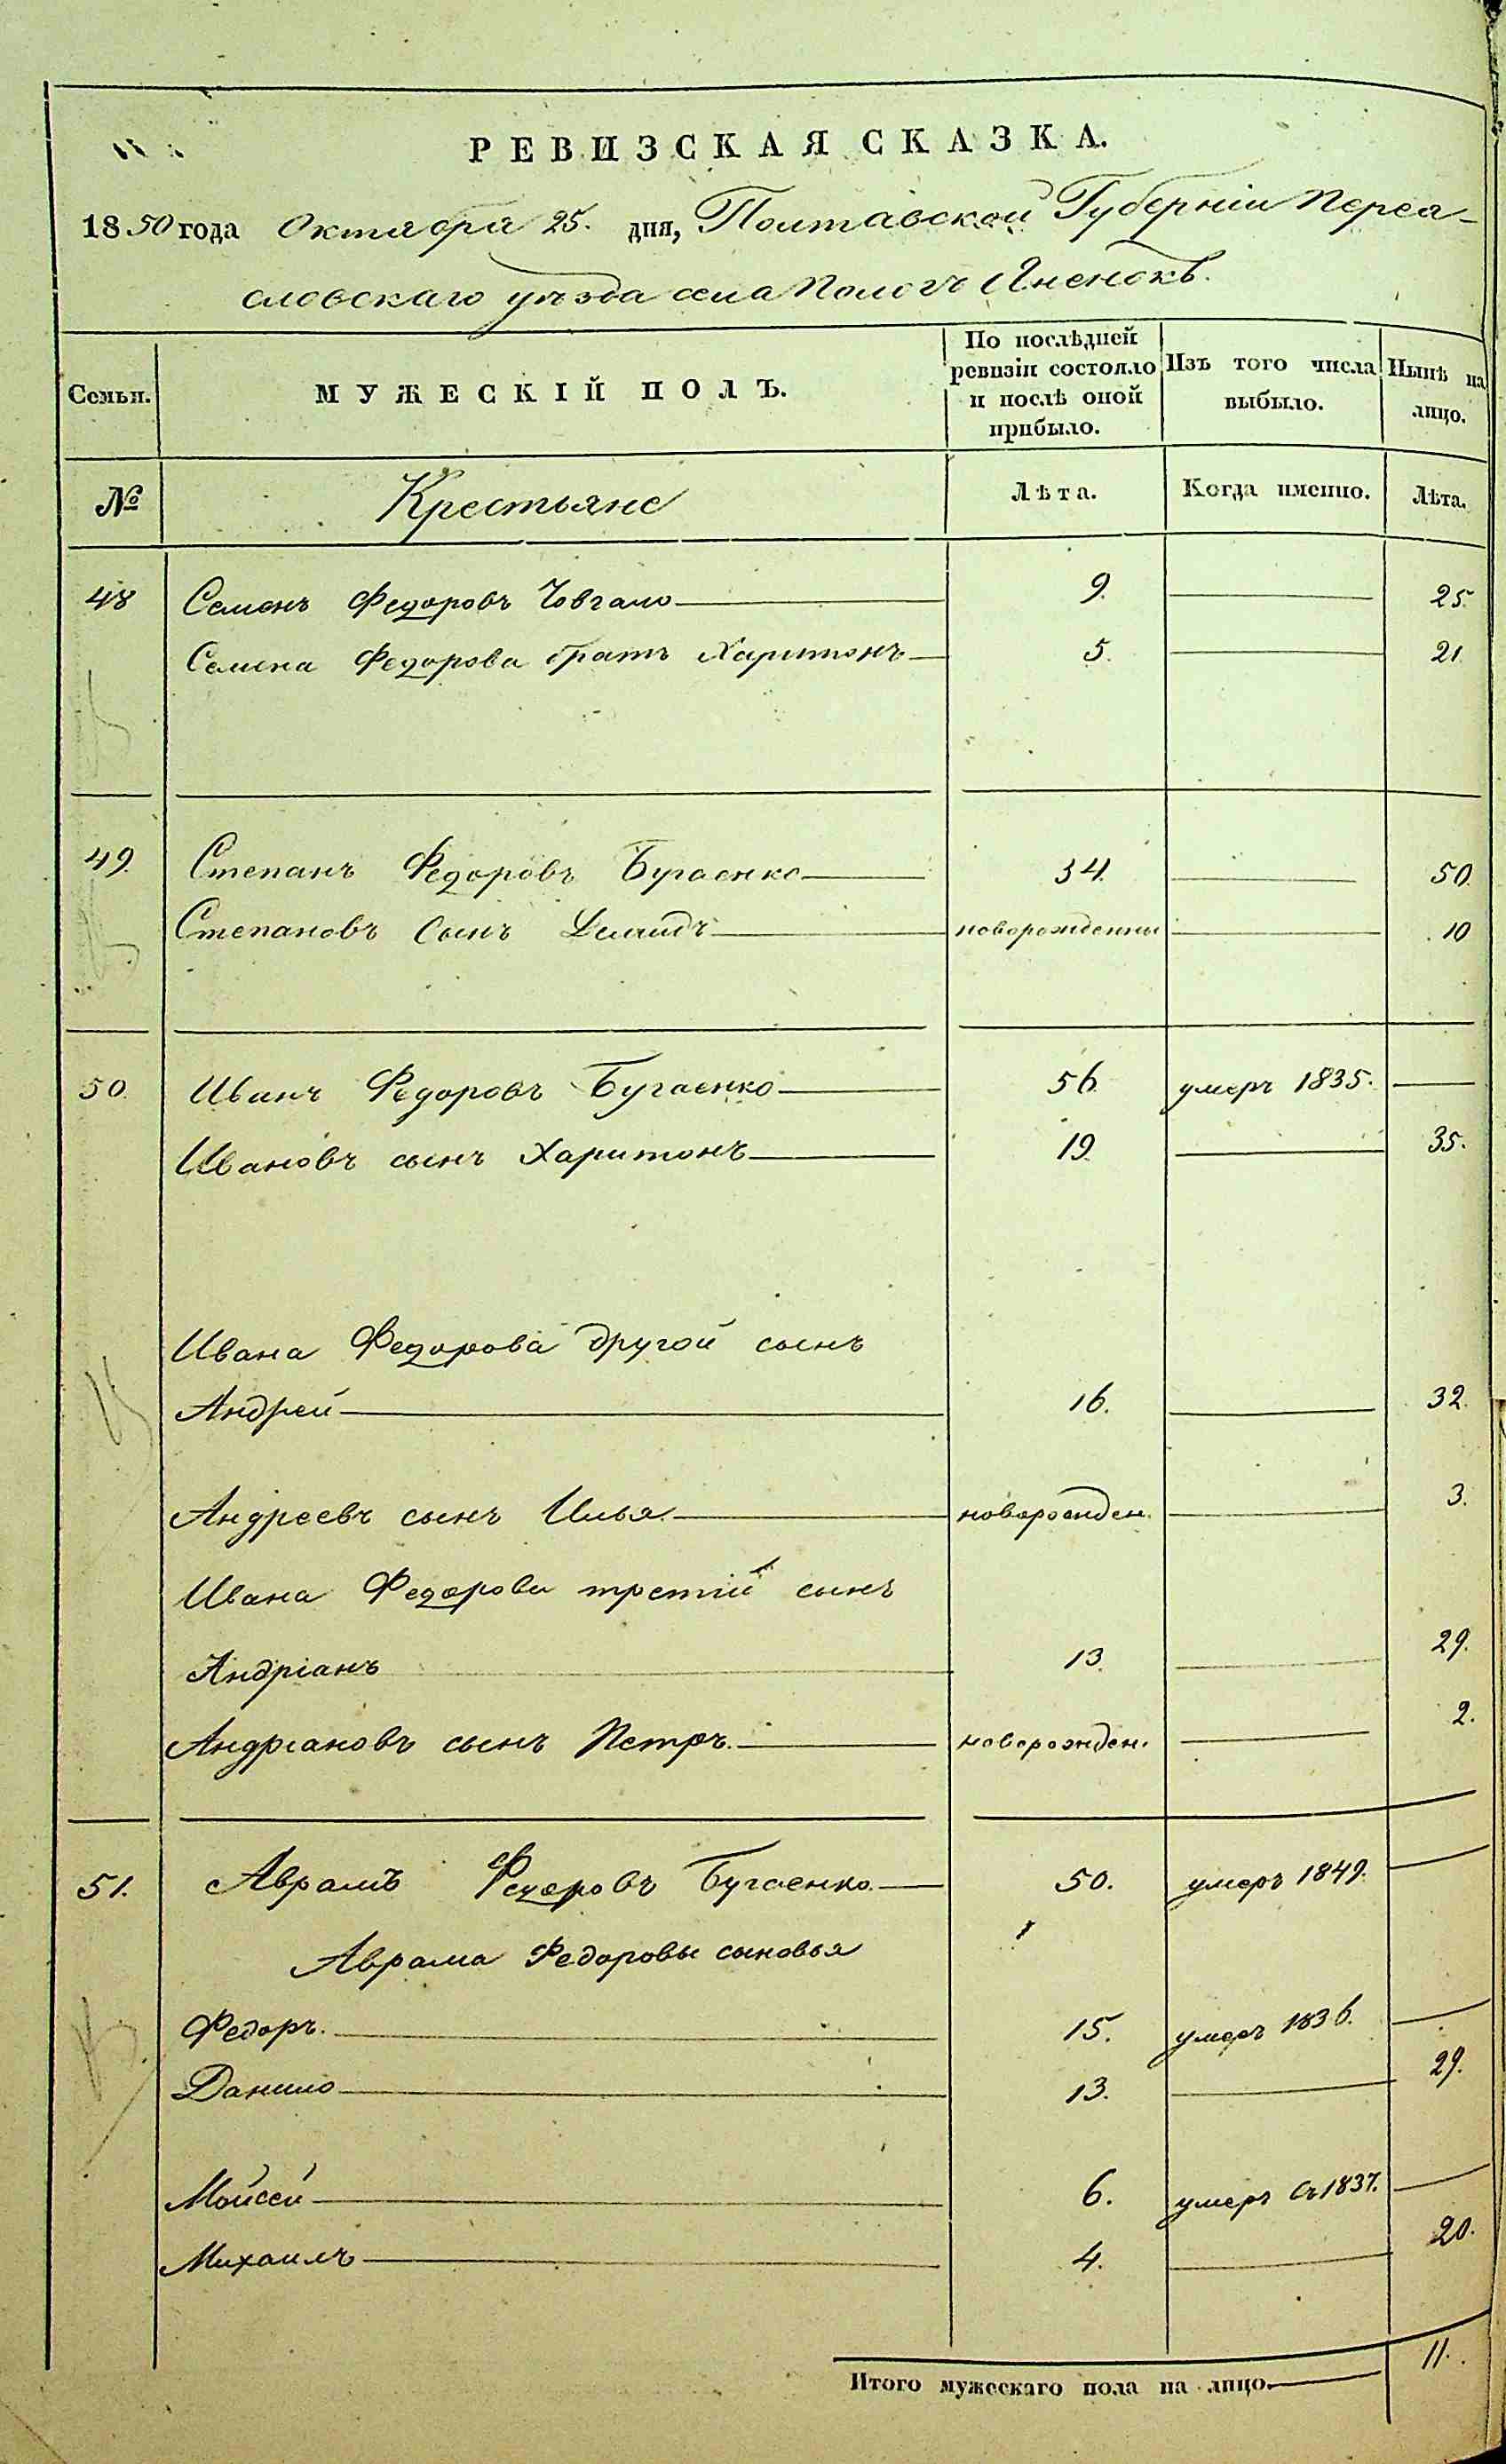 РЕВИЗСКАЯ СКАЗКА.
1850 года Октября 25. дня, Полтавской Губерніи Перея-
словскаго уѣзда села Пологъ Яненокъ.
Семьи. МУЖЕСКІЙ ПОЛЪ. По послѣдней ревизіи состояло и послѣ оной прибыло. Изъ того числа выбыло. Нынѣ на лицо.
№ Крестьяне Лѣта. Когда именно. Лѣта.
48 Семенъ Федоровъ Човгало 9. 25.
Семена Федорова братъ Харитонъ 5. 21.
49. Степанъ Федоровъ Бугаенко 34. 50.
Степановъ Сынъ Демидъ новорожденны 10
50. Иванъ Федоровъ Бугаенко 56. умеръ 1835.
Ивановъ сынъ Харитонъ 19. 35.
Ивана Федорова другой сынъ
Андрей 16. 32.
Андреевъ сынъ Илья новорожден. 3.
Ивана Федорова третій сынъ
Андріанъ 13. 29.
Андріановъ сынъ Петръ. новорожден. 2.
51. Аврамъ Федоровъ Бугаенко 50. умеръ 1849.
Аврама Федоровы сыновья
Федоръ. 15. умеръ 1836.
Данило 13. 29.
Мойсей 6. умеръ съ 1837.
Михаилъ 4. 20.
Итого мужескаго пола на лицо. 11.